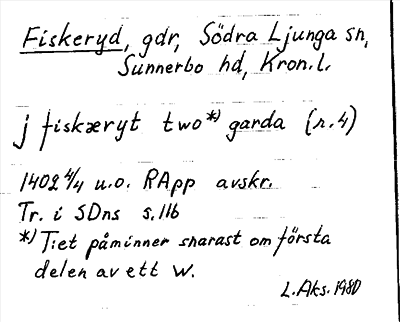 Fiskeryd, gdr, Södra Ljunga sn,
Sunnerbo hd, Kron.l.
j fiskæryt two*) garda (r.4)
1402 4/4 u.o. RApp avskr.
Tr. i SDns s.116
*) T:et påminner snarast om första
delen av ett w.
L.Aks. 1980